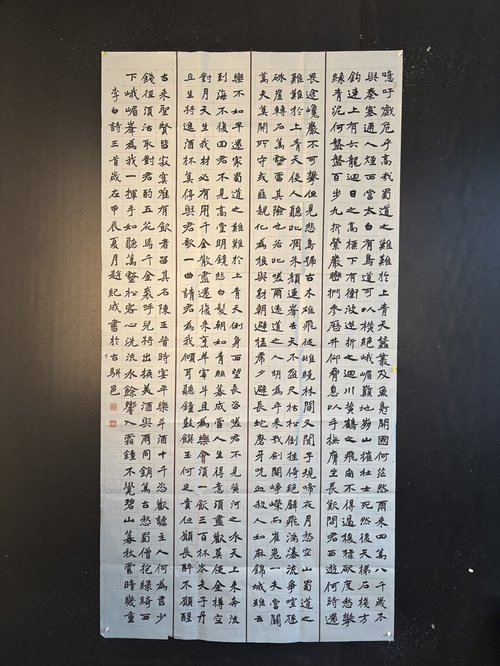 噫吁戲危乎高哉蜀道之難難於上青天蠶叢及魚鳧開國何茫然爾來四萬八千歲不
與秦塞通人煙西當太白有鳥道可以橫絕峨嵋巔地崩山摧壯士死然後天梯石棧方
鉤連上有六龍迴日之高標下有衝波逆折之迴川黃鶴之飛尚不得過猿猱欲度愁攀
緣青泥何盤盤百步九折縈巖巒捫參歷井仰脅息以手撫膺坐長歎問君西遊何時還
畏途巉巖不可攀但見悲鳥號古木雄飛從雌繞林間又聞子規啼夜月愁空山蜀道之
難難於上青天使人聽此凋朱顏連峯去天不盈尺枯松倒挂倚絕壁飛湍瀑流爭喧豗
砯崖轉石萬壑雷其險也若此嗟爾遠道之人胡為乎來哉劍閣崢嶸而崔嵬一夫當關
萬夫莫開所守或匪親化為狼與豺朝避猛虎夕避長蛇磨牙吮血殺人如麻錦城雖云
樂不如早還家蜀道之難難於上青天側身西望長咨嗟君不見黃河之水天上來奔流
到海不復回君不見高堂明鏡悲白髮朝如青絲暮成雪人生得意須盡歡莫使金樽空
對月天生我材必有用千金散盡還復來烹羊宰牛且為樂會須一飲三百杯岑夫子丹
丘生進酒杯莫停與君歌一曲請君為我傾耳聽鐘鼓饌玉何足貴但願長醉不願醒
古來聖賢皆寂寞惟有飲者留其名陳王昔時宴平樂斗酒十千恣歡謔主人何為言少
錢徑須沽取對君酌五花馬千金裘呼兒將出換美酒與爾同銷萬古愁蜀僧抱綠綺西
下峨嵋峯為我一揮手如聽萬壑松客心洗流水餘響入霜鐘不覺碧山暮秋雲暗幾重
李白詩三首歲在甲辰夏月趙紀成書於古駢邑